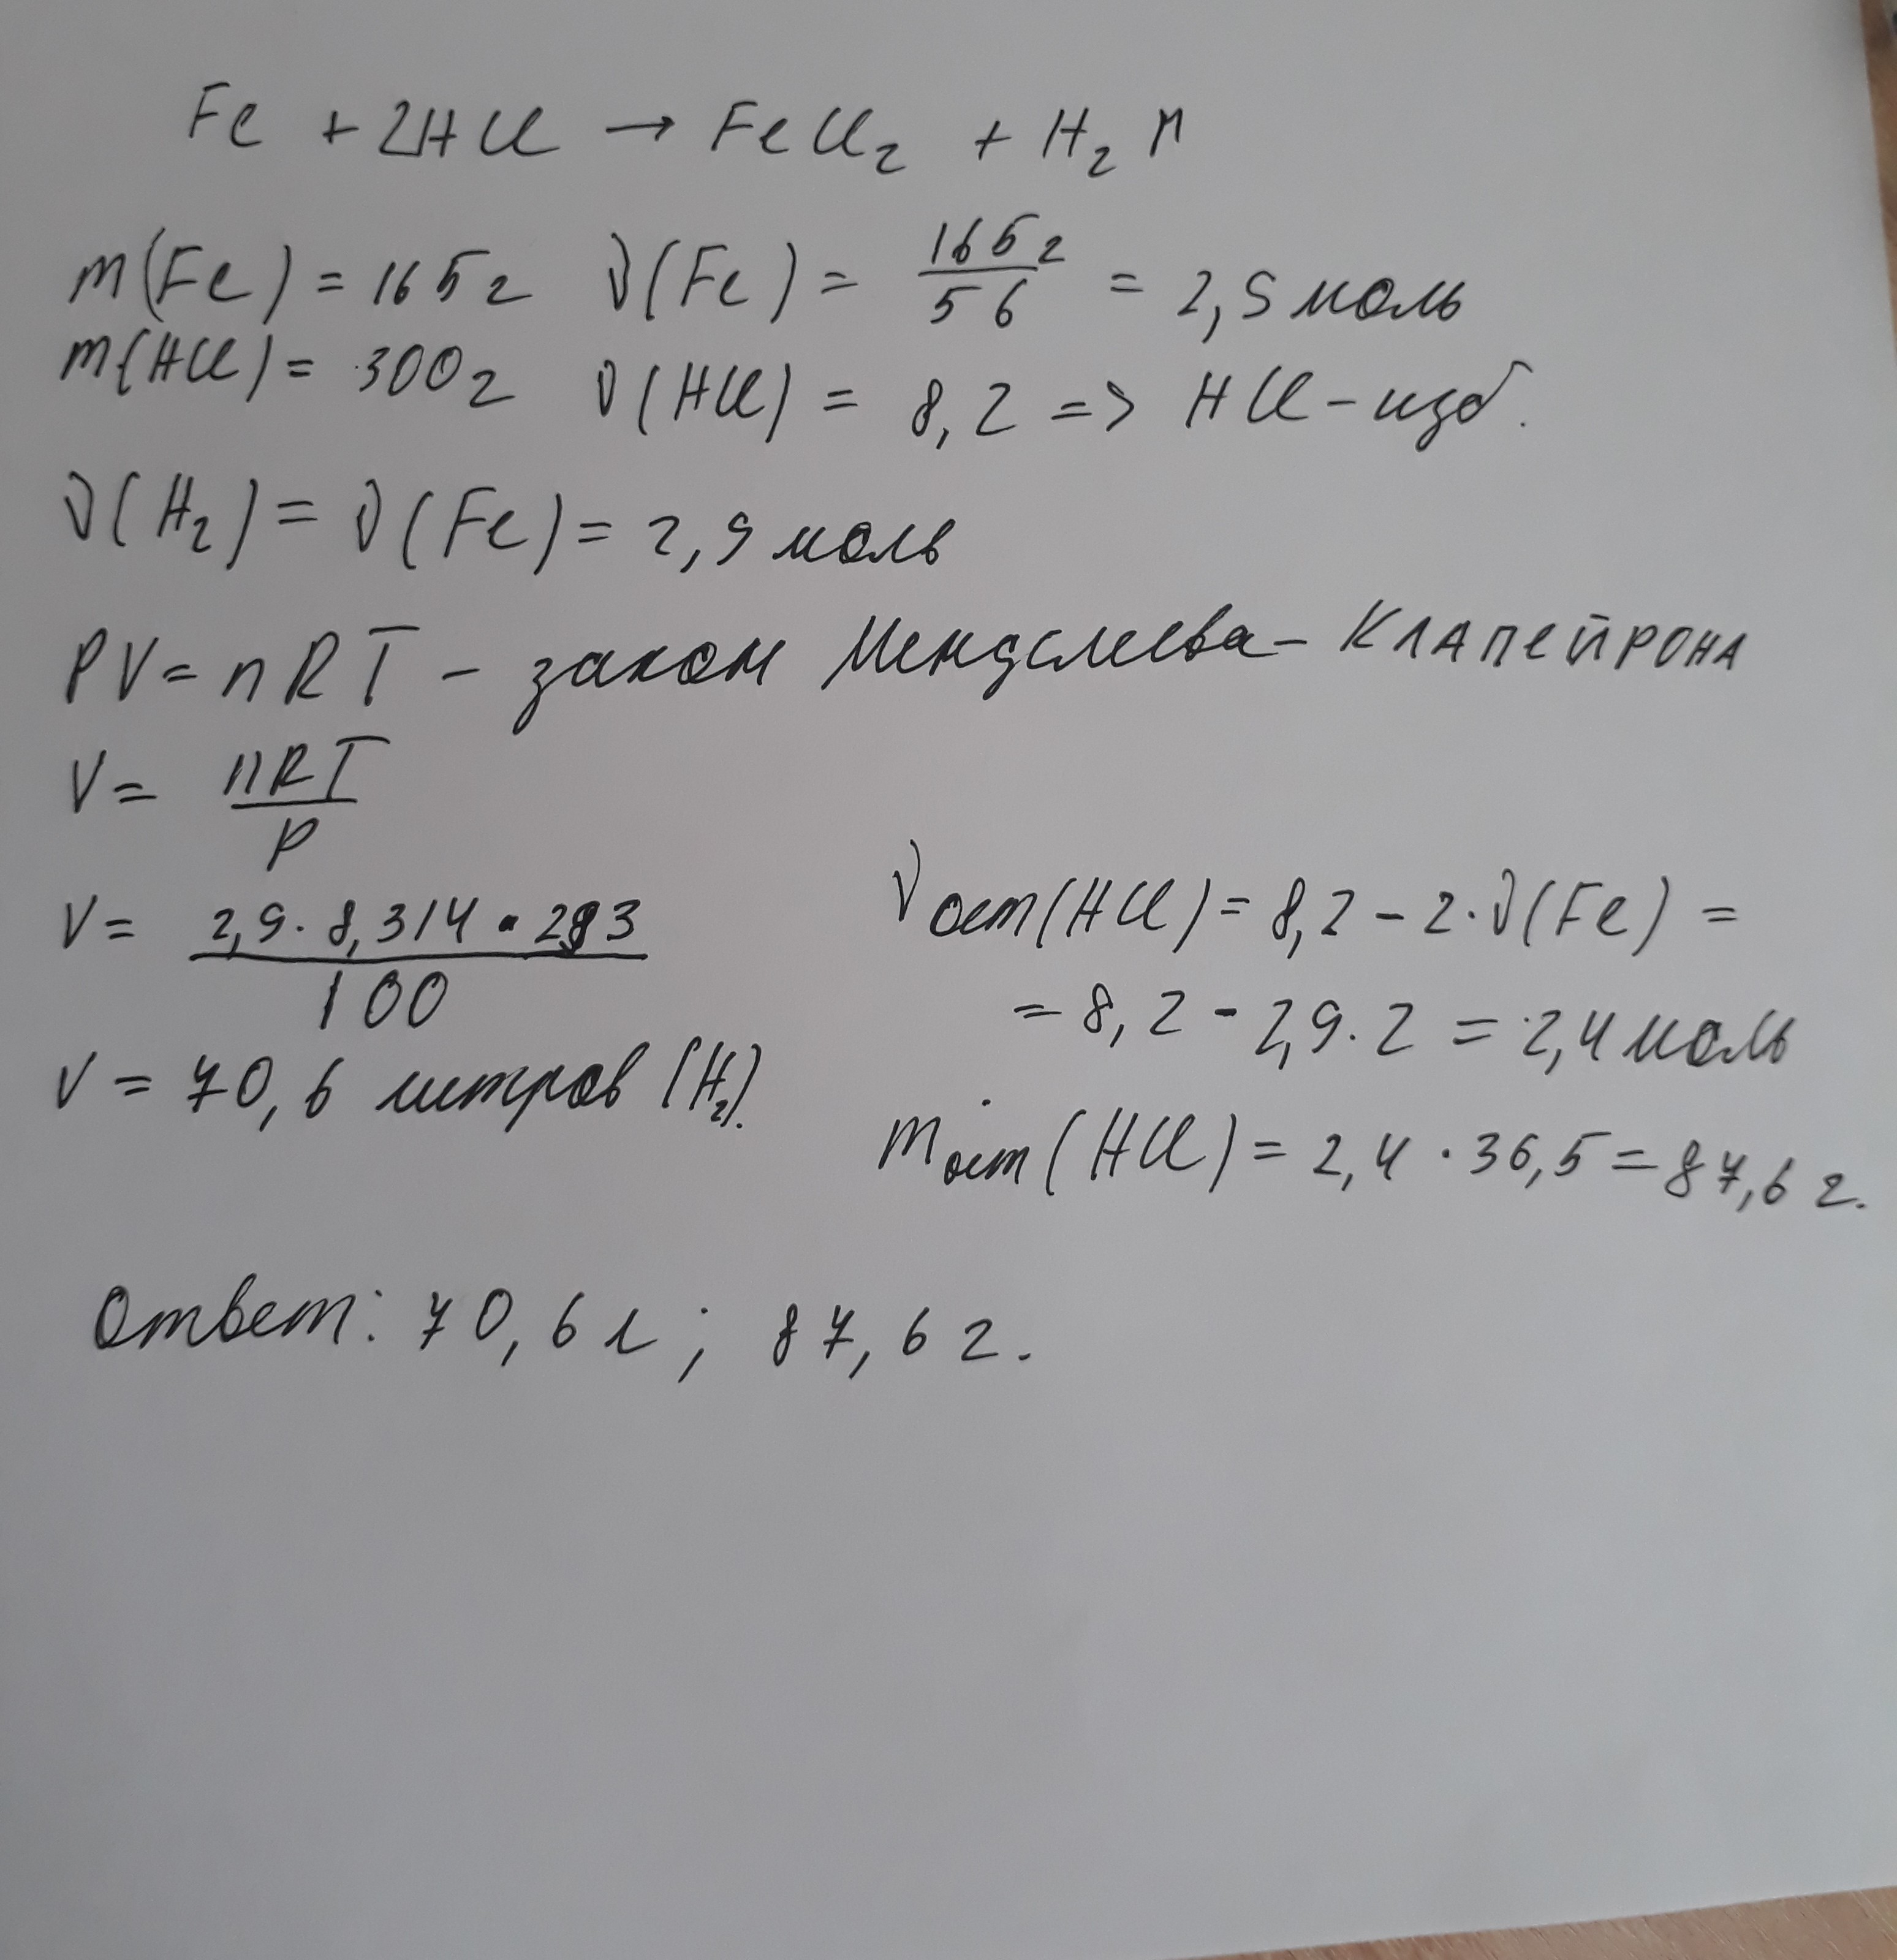 Fe + 2HCl → FeCl₂ + H₂↑
m(Fe) = 165г ν(Fe) = 165г/56 = 2,9 моль
m(HCl) = 300г ν(HCl) = 8,2 => HCl - изб.
ν(H₂) = ν(Fe) = 2,9 моль
PV = nRT - закон Менделеева - Клапейрона
V = nRT/P
V = 2,9 · 8,314 · 293/100
V = 70,6 литров (H₂).
νост(HCl) = 8,2 - 2·ν(Fe) =
= 8,2 - 2,9·2 = 2,4 моль
mост(HCl) = 2,4 · 36,5 = 87,6 г.
Ответ: 70,6 л; 87,6 г.